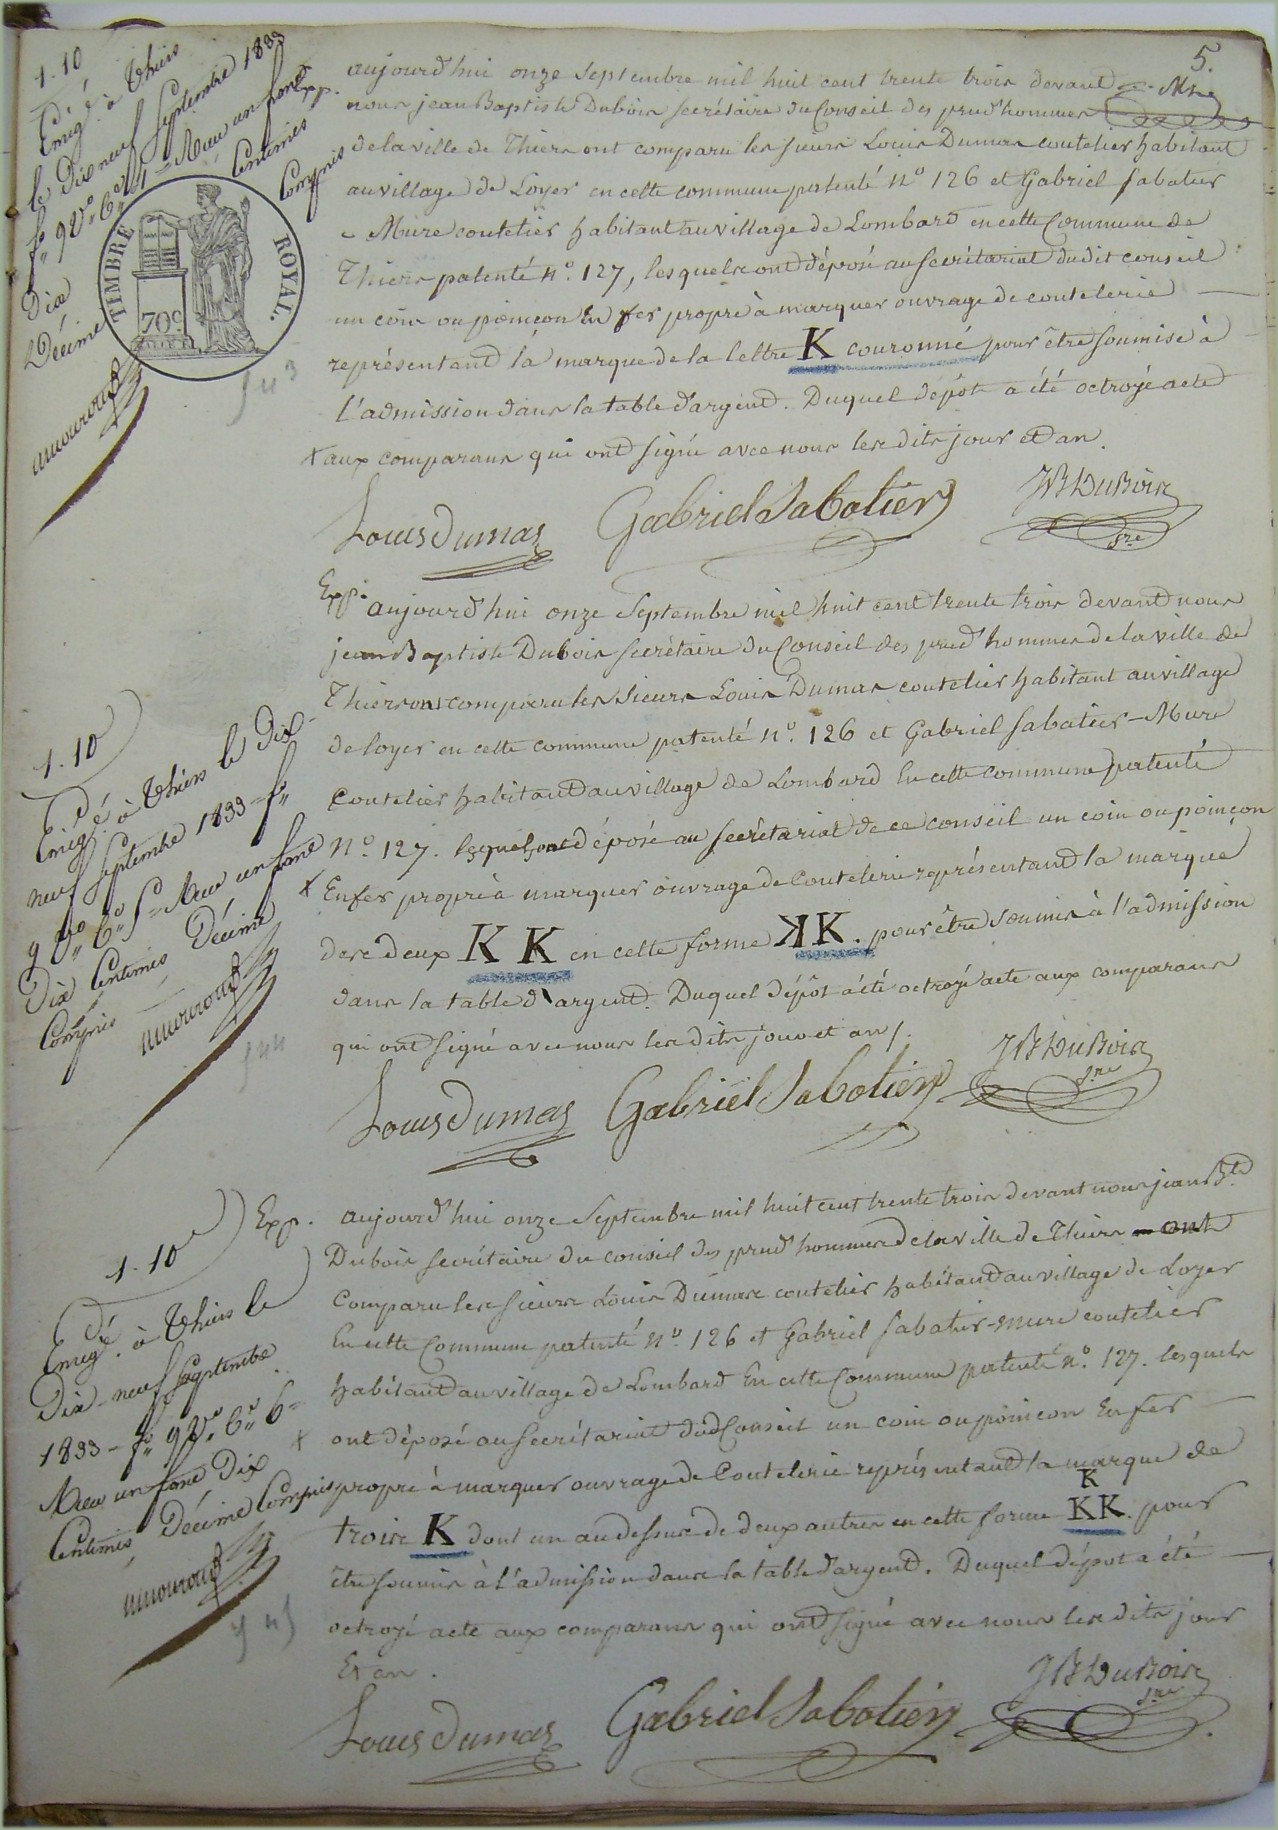 5.
1.10
Enreg.é à Thiers
le dix neuf Septembre 1833
f.o 9 V.o C.e 4 = Reçu un franc
Dix
Centimes
Décime
Compris
TIMBRE ROYAL.
70c
Exp. aujourd'hui onze Septembre mil huit cent trente trois devant
nous jean Baptiste Dubois secrétaire du Conseil des prud'hommes
de la ville de Thiers ont comparu les sieurs Louis Dumas coutelier habitant
au village de Loyer en cette commune patenté N.o 126 et Gabriel Sabatier
- Mure coutelier habitant au village de Lombard en cette Commune de
Thiers patenté N.o 127, lesquels ont déposé au secrétariat dudit conseil
un coin ou poinçon En fer propre à marquer ouvrage de coutelerie
représentant la marque de la lettre K couronné pour être soumise à
l'admission dans la table d'argent. Duquel dépôt a été octroyé acte
aux comparans qui ont signé avec nous les dits jour et an.
Louis Dumas Gabriel Sabatier JB Dubois
sre
Exp. aujourd'hui onze Septembre mil huit cent trente trois devant nous
jean Baptiste Dubois secrétaire du Conseil des prud'hommes de la ville de
Thiers ont comparu les Sieurs Louis Dumas coutelier habitant au village
de loyer en cette commune patenté N.o 126 et Gabriel Sabatier - Mure
Coutelier habitant au village de Lombard En cette commune patenté
N.o 127. lesquels ont déposé au secrétariat de ce conseil un coin ou poinçon
En fer propre à marquer ouvrage de Coutelerie représentant la marque
de ce deux K K en cette forme KK. pour être soumis à l'admission
dans la table d'argent. Duquel dépôt a été octroyé acte aux comparans
qui ont signé avec nous les dits jour et an.
1.10
Enreg.é à Thiers le Dix
neuf Septembre 1833 - f.o
9 V.o C.e 5 = Reçu un franc
Dix Centimes Décime
Compris
Louis Dumas Gabriel Sabatier JB Dubois
sre
Exp. aujourd'hui onze Septembre mil huit cent trente trois devant nous jean Bte
Dubois secrétaire du conseil des prud'hommes de la ville de Thiers ont
Comparu les sieurs Louis Dumas coutelier habitant au village de Loyer
En cette Commune patenté N.o 126 et Gabriel Sabatier-Mure coutelier
habitant au village de Lombard En cette Commune patenté N.o 127. lesquels
ont déposé au secrétariat dud Conseil un coin ou poinçon En fer
propre à marquer ouvrage de Coutelerie représentant la marque de
K
trois K dont un au dessus de deux autres en cette forme KK. pour
être soumis à l'admission dans la table d'argent. Duquel dépot a été
octroyé acte aux comparans qui ont signé avec nous les dits jour
Et an.
1.10
Enreg.é à Thiers le
Dix-neuf Septembre
1833 - f.o 9 V.o C.e 6 =
Reçu un franc Dix
Centimes Décime Compris
Louis Dumas Gabriel Sabatier JB Dubois
sre